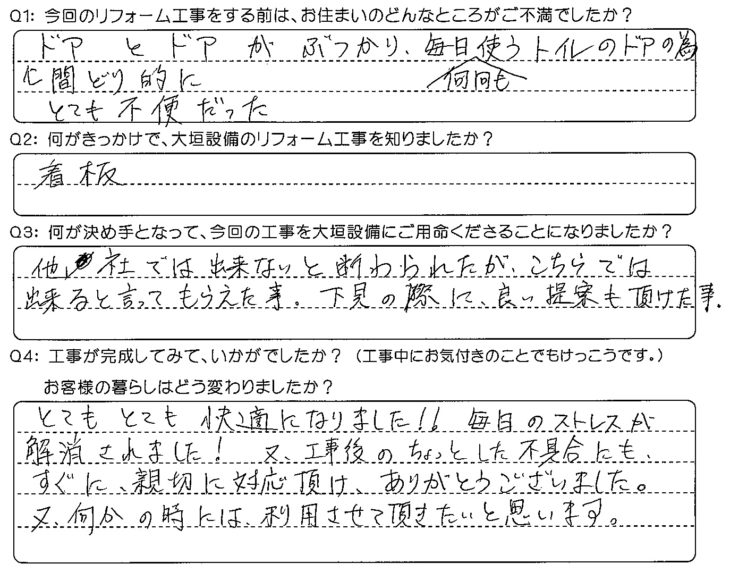 Q1: 今回のリフォーム工事をする前は、お住まいのどんなところがご不満でしたか？
ドア と ドア が ぶつかり、毎日使うトイレのドアの為
何回も
に間どり的に
とても不便だった
Q2: 何がきっかけで、大垣設備のリフォーム工事を知りましたか？
看板
Q3: 何が決め手となって、今回の工事を大垣設備にご用命くださることになりましたか？
他社では出来ないと断わられたが、こちらでは
出来ると言ってもらえた事。下見の際に、良い提案も頂けた事.
Q4: 工事が完成してみて、いかがでしたか？（工事中にお気付きのことでもけっこうです。）
お客様の暮らしはどう変わりましたか？
とてもとても快適になりました!! 毎日のストレスが
解消されました! 又、工事後のちょっとした不具合にも、
すぐに、親切に対応頂け、ありがとうございました。
又、何かの時には、利用させて頂きたいと思います。